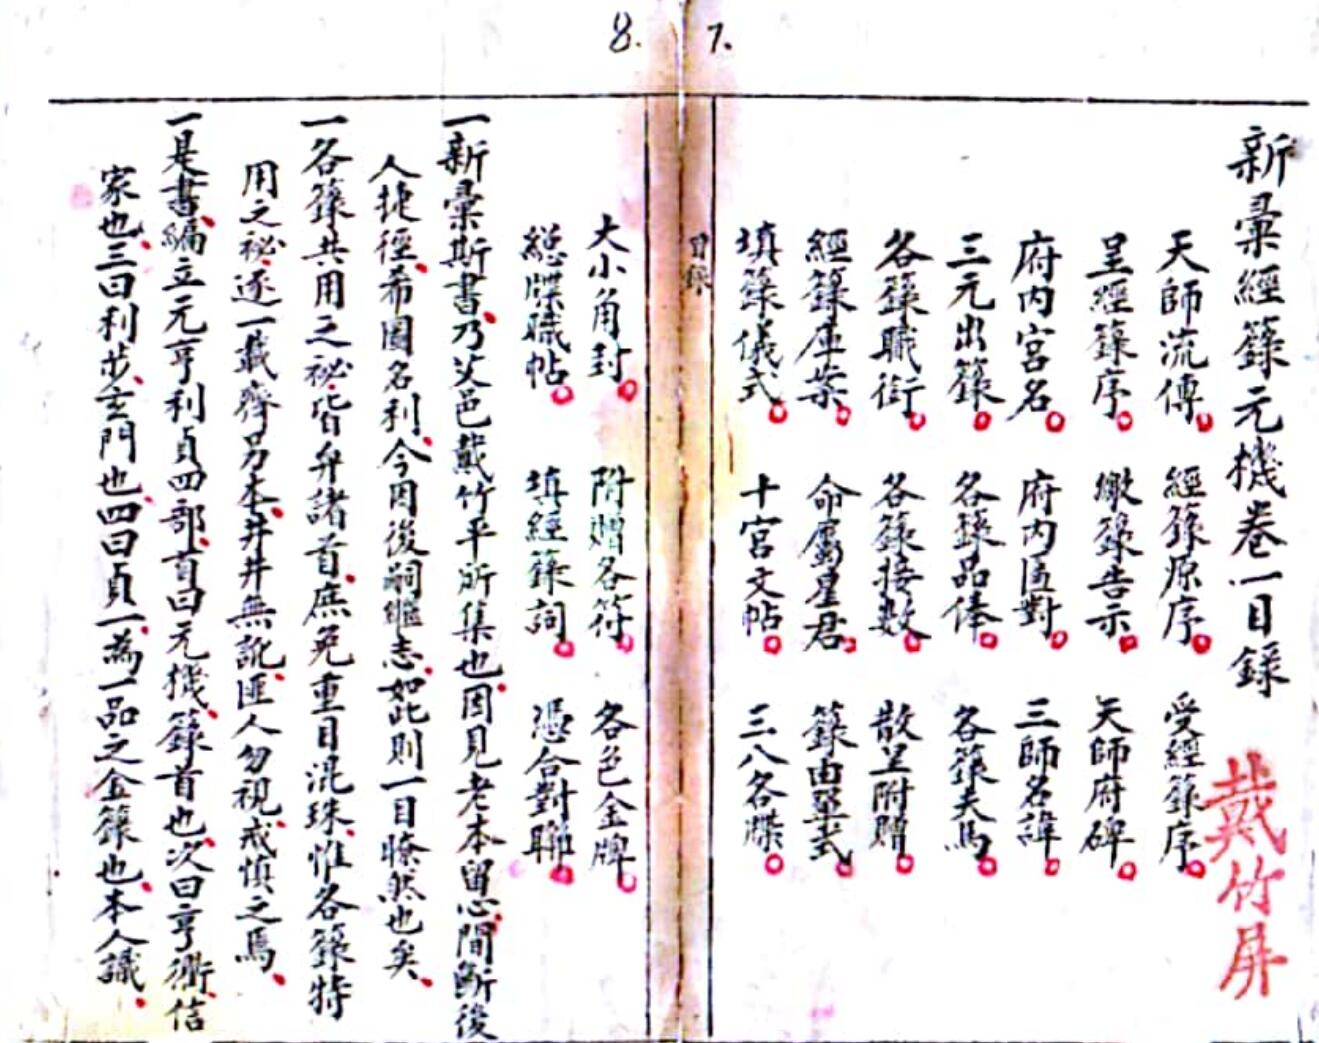 7.
新彙經籙元機卷一目錄
戴竹屏
天師流傳 經籙原序 受經籙序
呈經籙序 繳籙告示 天師府碑
府内宮名 府内匾對 三師名諱
三元出籙 各籙品俸 各籙夫馬
各籙職銜 各籙接數 散呈附贈
經籙庫葉 命屬星君 籙由單式
填籙儀式 十宮文帖 三八各牒
目錄
8.
大小角封 附贈各符 各色金牌
總牒職帖 填經籙詞 憑合對聯
一新彙斯書乃艾邑戴竹平所集也因見老本留心間斷後
人捷徑希圖名利今因後嗣繼志如此則一目瞭然也矣
一各籙共用之祕皆弁諸首庶免重目混珠惟各籙特
用之祕逐一載齊另本井井無訛匪人勿視戒慎之焉
一是書編立元亨利貞四部首曰元機籙首也次曰亨衢信
家也三曰利步玄門也四曰貞一為一品之金籙也本人識